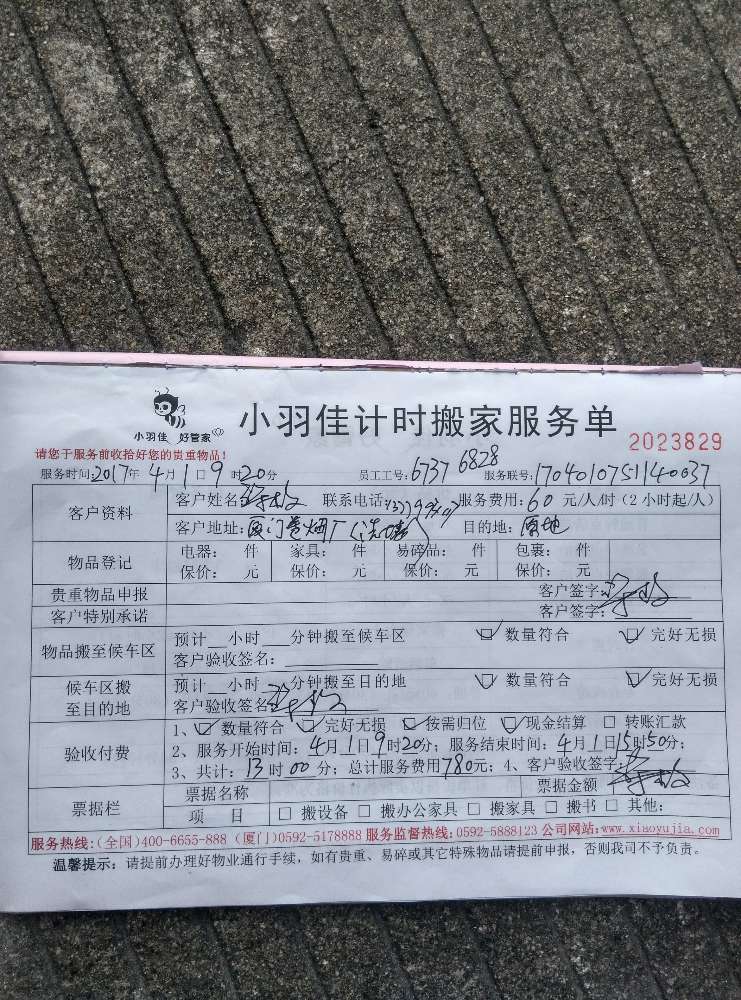 小羽佳 好管家
小羽佳计时搬家服务单
2023829
请您于服务前收拾好您的贵重物品!
服务时间:2017年4月1日9时20分 员工工号:6737 6828 服务联号:1704010751140037
客户资料
客户姓名: 联系电话: 服务费用:60元/人/时(2小时起/人)
客户地址:厦门卷烟厂 目的地:原地
物品登记
电器: 件 家具: 件 易碎品: 件 包裹: 件
保价: 元 保价: 元 保价: 元 保价: 元
贵重物品申报 客户签字:
客户特别承诺 客户签字:
物品搬至候车区
预计__小时___分钟搬至候车区 数量符合 完好无损
客户验收签名:
候车区搬至目的地
预计__小时___分钟搬至目的地 数量符合 完好无损
客户验收签名:
验收付费
1、数量符合 完好无损 按需归位 现金结算 转账汇款
2、服务开始时间:4月1日9时20分;服务结束时间:4月1日15时50分;
3、共计:13时00分;总计服务费用780元;4、客户验收签字:
票据栏
票据名称 票据金额
项 目 搬设备 搬办公家具 搬家具 搬书 其他:
服务热线:(全国)400-6655-888 (厦门)0592-5178888 服务监督热线:0592-5888123 公司网站:www.xiaoyujia.com
温馨提示:请提前办理好物业通行手续,如有贵重、易碎或其它特殊物品请提前申报,否则我司不予负责。